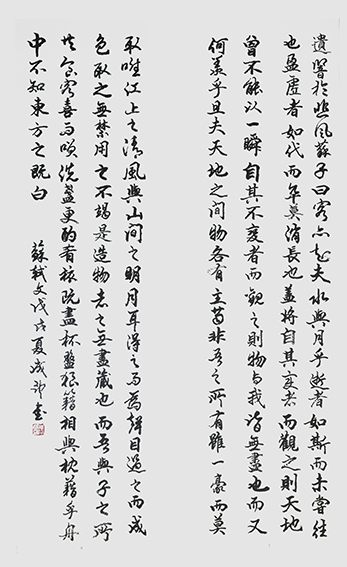 遺響於悲風蘇子曰客亦知夫水與月乎逝者如斯而未嘗往
也盈虛者如代而卒莫消長也蓋將自其變者而觀之則天地
曾不能以一瞬自其不變者而觀之則物与我皆無盡也而又
何羨乎且夫天地之間物各有主苟非吾之所有雖一豪而莫
取唯江上之清風與山間之明月耳得之而為聲目遇之而成
色取之無禁用之不竭是造物者之無盡藏也而吾與子之所
共食客喜而咲洗盞更酌肴核既盡杯盤狼籍相與枕藉乎舟
中不知東方之既白
蘇軾文戊戌夏成書